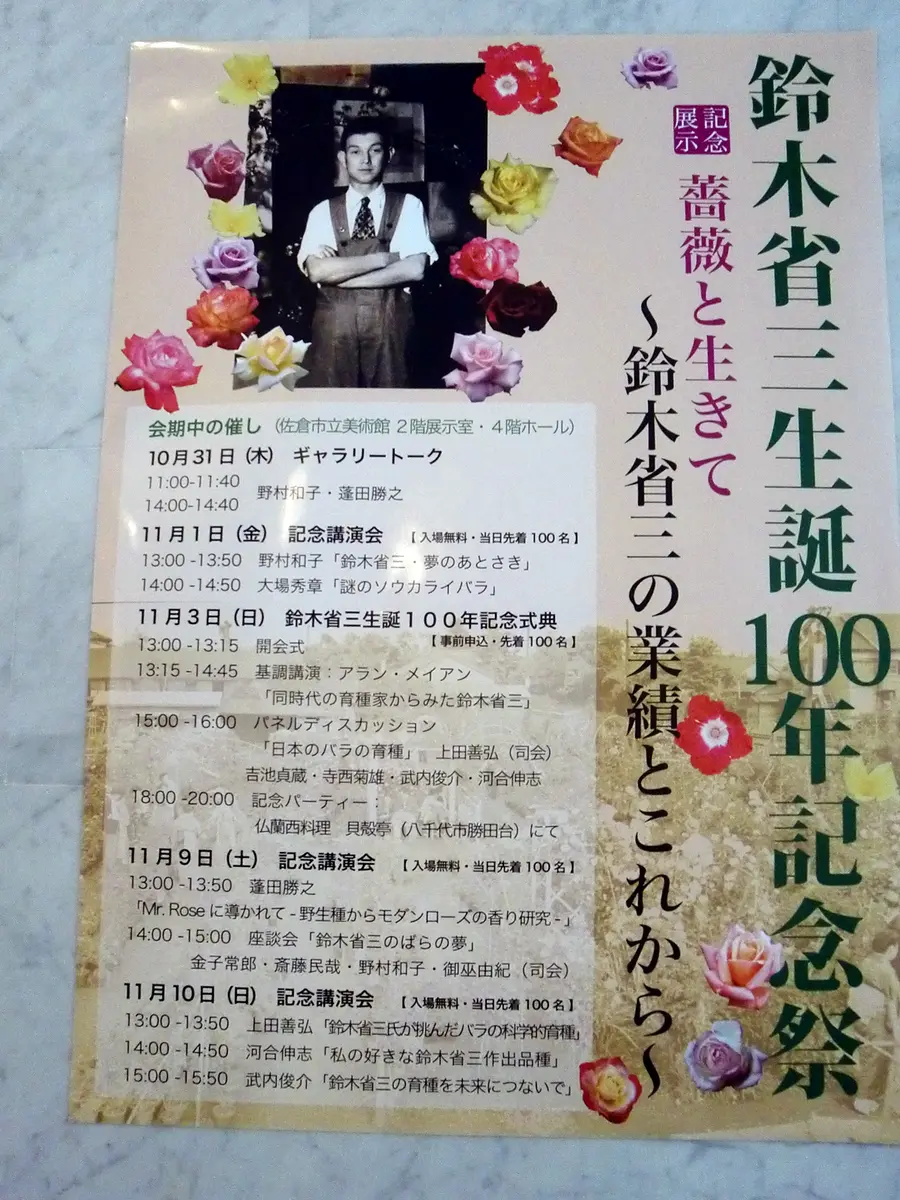 鈴木省三生誕100年記念祭
記念
展示
薔薇と生きて
～鈴木省三の業績とこれから～
会期中の催し（佐倉市立美術館 2階展示室・4階ホール）
10月31日（木） ギャラリートーク
11:00-11:40
14:00-14:40
野村和子・蓬田勝之
11月1日（金） 記念講演会 【 入場無料・当日先着100名】
13:00 -13:50 野村和子「鈴木省三・夢のあとさき」
14:00 -14:50 大場秀章「謎のソウカライバラ」
11月3日（日） 鈴木省三生誕100年記念式典
【 事前申込・先着100名】
13:00 -13:15 開会式
13:15 -14:45 基調講演：アラン・メイアン
「同時代の育種家からみた鈴木省三」
15:00 -16:00 パネルディスカッション
「日本のバラの育種」 上田善弘（司会）
吉池貞蔵・寺西菊雄・武内俊介・河合伸志
18:00 -20:00 記念パーティー：
仏蘭西料理 貝殻亭（八千代市勝田台）にて
11月9日（土） 記念講演会 【 入場無料・当日先着100名】
13:00 -13:50 蓬田勝之
「Mr. Rose に導かれて - 野生種からモダンローズの香り研究 -」
14:00 -15:00 座談会「鈴木省三のばらの夢」
金子常郎・斎藤民哉・野村和子・御巫由紀（司会）
11月10日（日） 記念講演会 【 入場無料・当日先着100名】
13:00 -13:50 上田善弘「鈴木省三氏が挑んだバラの科学的育種」
14:00 -14:50 河合伸志「私の好きな鈴木省三作出品種」
15:00 -15:50 武内俊介「鈴木省三の育種を未来につないで」